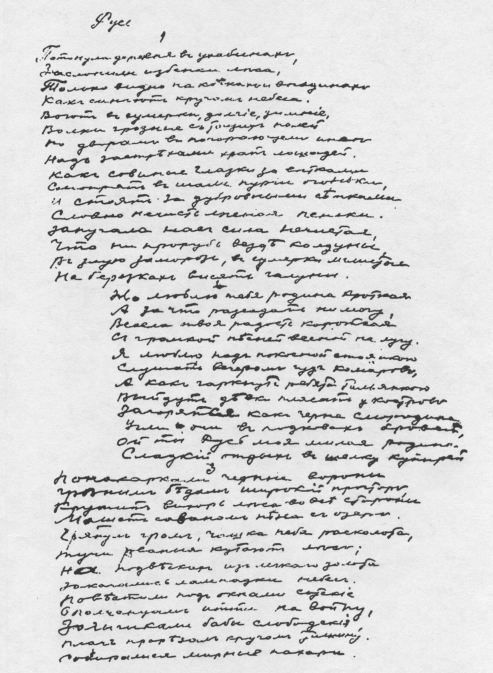 Русь
1
Потонула деревня въ ухабинахъ,
Заслонили избенки лѣса,
Только видно на кочкахъ и впадинахъ
Какъ синѣютъ кругомъ небеса.
Воютъ въ сумерки, долгіе, зимніе,
Волки грозные съ тощихъ полей
По дворамъ въ погорающемъ инеѣ
Надъ застрѣхами храпъ лошадей.
Какъ совиные глазки за вѣтками
Смотрятъ въ шали пурги огоньки,
И стоятъ за дубровными сѣтками
Словно нечисть лесная пеньки.
Запугала насъ сила нечистая,
Что ни прорубь вездѣ колдуны
Въ злую заморозь, въ сумерки мглистые
На березкахъ висятъ галуны.
2
Но люблю тебя родина кроткая
А за что разгадать не могу,
Весела твоя радость короткая
Съ громкой пѣсней весной на лугу.
Я люблю надъ покосной стоянкою
Слушать вечеромъ гудъ комаровъ,
А какъ гаркнутъ ребята тальянкою
Выйдутъ дѣвки плясать у костровъ
Загорятся какъ черна смородина
Угли-очи въ подковахъ бровей,
Ой ты Русь моя милая родина.
Сладкій отдыхъ въ шелку купырей
3
Понакаркали черные вороны
Грознымъ бѣдамъ широкій просторъ
Крутитъ вихорь лѣса во всѣ стороны
Машетъ саваномъ пѣна съ озеръ.
Грянулъ громъ, чашка неба расколота,
Тучи рваныя кутаютъ лѣсъ;
На подвѣскахъ изъ легкаго золота
Закачались лампадки небесъ.
Повѣстили подъ окнами сотскіе
Ополченцамъ идти на войну,
Загыгыкали бабы слободскія
Плачъ прорѣзалъ кругомъ тишину.
Собиралися мирные пахари.